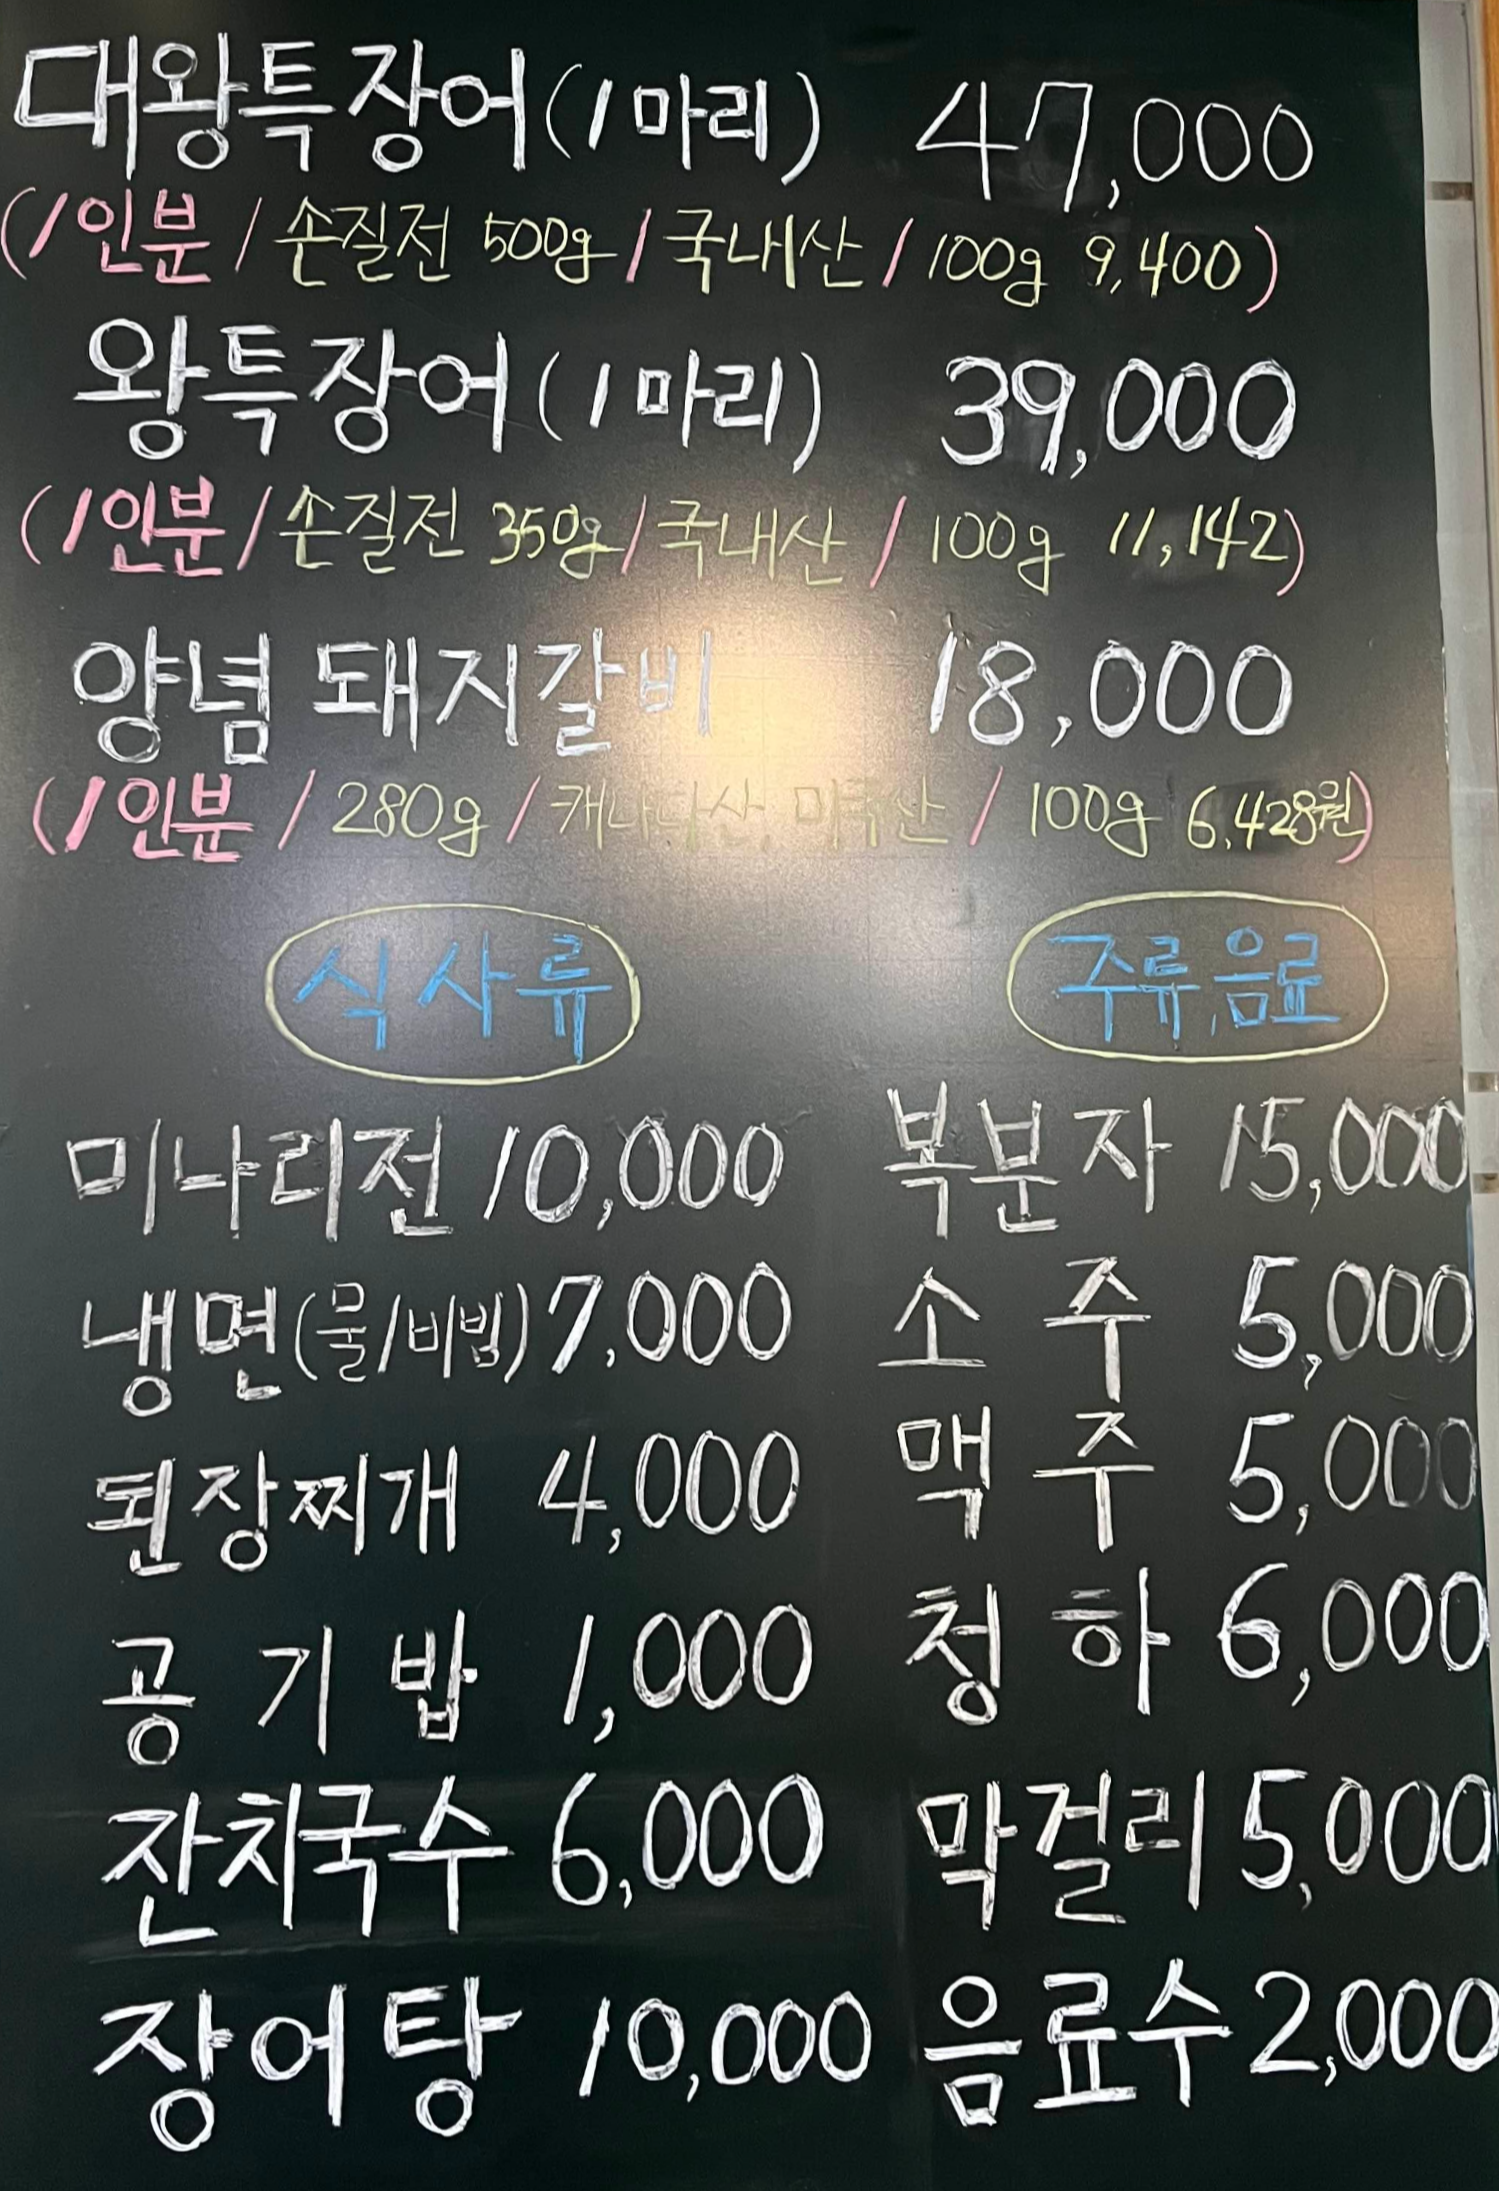 대왕특장어(1마리) 47,000
(1인분/손질전 500g/국내산/100g 9,400)
왕특장어(1마리) 39,000
(1인분/손질전 350g/국내산/100g 11,142)
양념 돼지갈비 18,000
(1인분/280g/캐나다산, 미국산/100g 6,428원)
식사류
미나리전 10,000
냉면(물/비빔) 7,000
된장찌개 4,000
공기밥 1,000
잔치국수 6,000
장어탕 10,000
주류,음료
복분자 15,000
소주 5,000
맥주 5,000
청하 6,000
막걸리 5,000
음료수 2,000